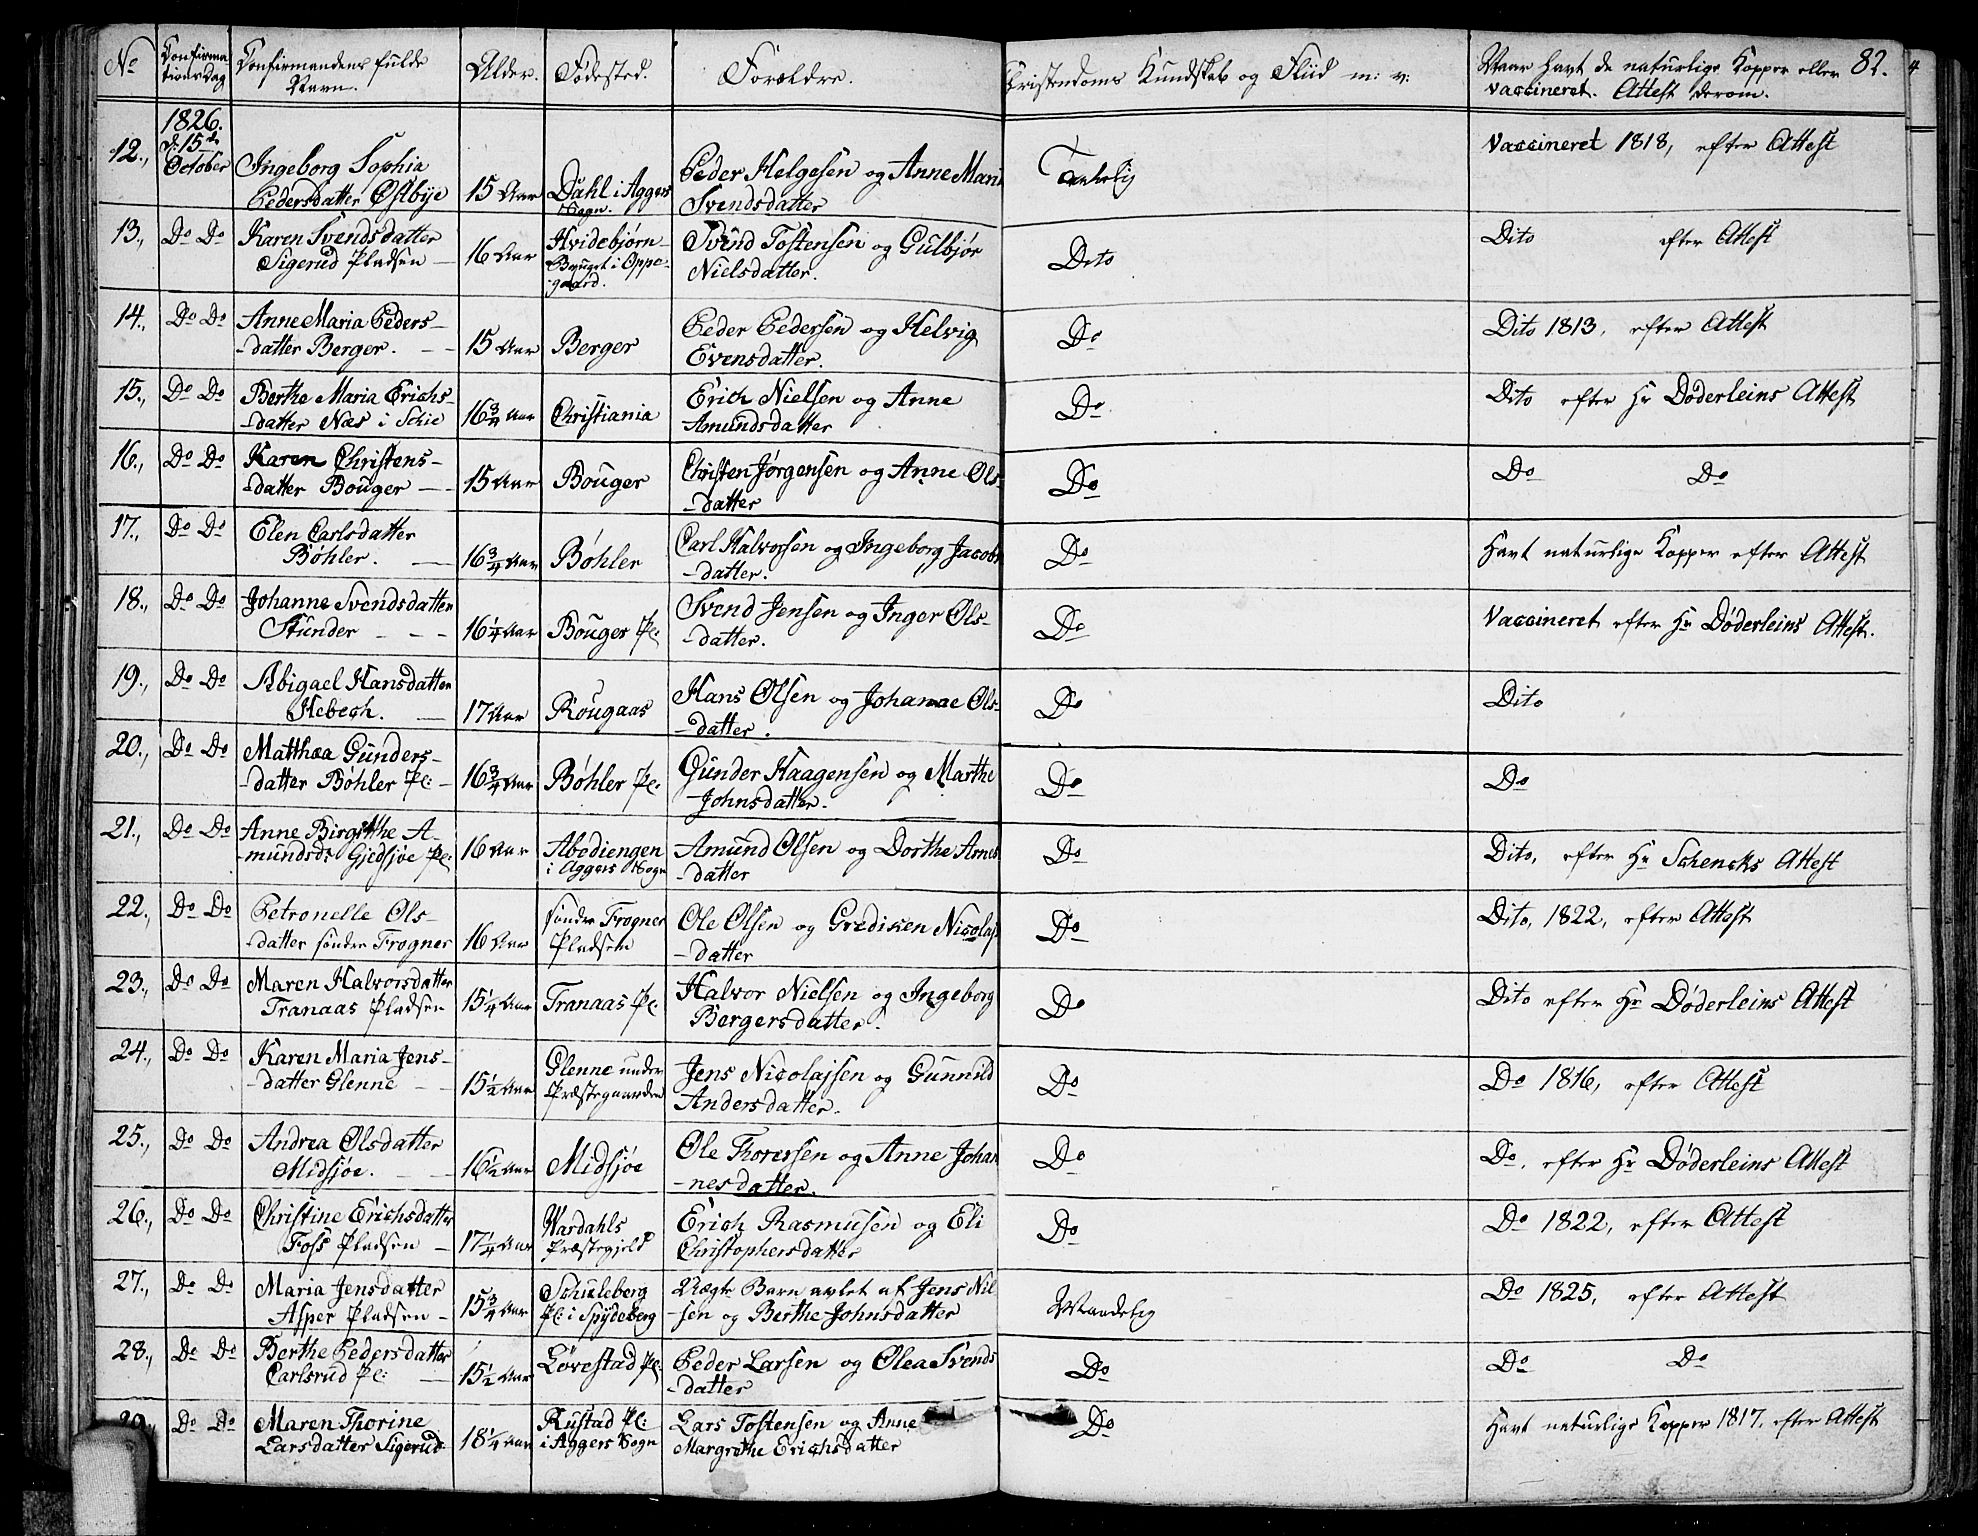 No Confirma Confirmandens fulde Alder. Fødested. Forældre. Christendoms Kundskab og Flid m: v: Naar havt de naturlige Kopper eller 82.
tions Dag Navn. vaccineret. Attest derom.
1826.
12., d: 15de Ingeborg Sophia 15 Aar Dahl i Aggers Peder Helgesen og Anne Maria Vaccineret 1818, efter Attest
October Pedersdatter Østbye Sogn. Svendsdatter
13., Do Do Karen Svendsdatter 16 Aar Hvidebjørn- Svend Tostensen og Gulbjør Dito Dito efter Attest
Sigerud Pladsen - Bruget i Oppe- Nielsdatter.
gaard.
14., Do Do Anne Maria Peders- 15 Aar Berger Peder Pedersen og Helvig Do Dito 1813, efter Attest
-datter Berger. - - Evensdatter.
15., Do Do Berthe Maria Erichs- 16 3/4 Aar Christiania Erich Nielsen og Anne Do Dito efter Hr Døderleins Attest
-datter Næs i Schie Amundsdatter
16., Do Do Karen Christens- 15 Aar Bouger Christen Jørgensen og Anne Ols- Do Do Do
-datter Bouger - - -datter
17., Do Do Elen Carlsdatter 16 3/4 Aar Bøhler Carl Halvorsen og Ingeborg Jacobs Do Havt naturlige Kopper efter Attest
Bøhler. - -datter.
18., Do Do Johanne Svendsdatter 16 1/4 Aar Bouger Pl: Svend Jensen og Inger Ols- Do Vaccineret efter Hr Døderleins Attest.
Stunder - - - -datter.
19., Do Do Abigael Hansdatter 17 Aar Rougaas Hans Olsen og Johanne Ols- Do Dito
Hebech. - -datter.
20., Do Do Matthæa Gunders- 16 3/4 Aar Bøhler Pl: Gunder Haagensen og Marthe Do Do
-datter Bøhler Pl: - Johnsdatter.
21., Do Do Anne Birgitthe A- 16 Aar Abediengen Amund Olsen og Dorthe Arnes Do Dito, efter Hr Schencks Attest
-mundsd: Gjedsjøe Pl: i Aggers Sogn -datter
22., Do Do Petronelle Ols- 16 Aar søndre Frogner Ole Olsen og Grediken Nicolaj Do Dito, 1822, efter Attest
-datter søndre Frogner Pladsen -datter
23., Do Do Maren Halvorsdatter 15 1/4 Aar Tranaas Pl: Halvor Nielsen og Ingeborg Do Dito efter Hr Døderleins Attest
Tranaas Pladsen Bergersdatter.
24., Do Do Karen Maria Jens- 15 1/2 Aar Glenne under Jens Nicolajsen og Gunnild Do Do 1816, efter Attest
-datter Glenne - - Præstegaarden Andersdatter.
25., Do Do Andrea Olsdatter 16 1/2 Aar Midsjøe Ole Thoresen og Anne Johan Do Do, efter Hr Døderleins Attest
Midsjøe. - - -nesdatter.
26., Do Do Christine Erichsdatter 17 1/4 Aar Wardahls Erich Rasmusen og Eli Do Do 1822, efter Attest
Foss Pladsen - Præstegjeld Christophersdatter
27., Do Do Maria Jensdatter 15 3/4 Aar Schuleberg Uægte Barn avlet af Jens Nil Maadelig Do 1825, efter Attest
Asper Pladsen - Pl: i Spydeberg -sen og Berthe Johnsdatter
28., Do Do Berthe Pedersdatter 15 1/2 Aar Løvestad Pl: Peder Larsen og Olea Svends Do Do Do
Carlsrud Pl: - -datter
29., Do Do Maren Thorine 18 1/4 Aar Rustad Pl: Lars Tostensen og Anne Do Havt naturlige Kopper 1817, efter Attest
Larsdatter Sigerud i Aggers Sogn Margrethe Erichsdatter